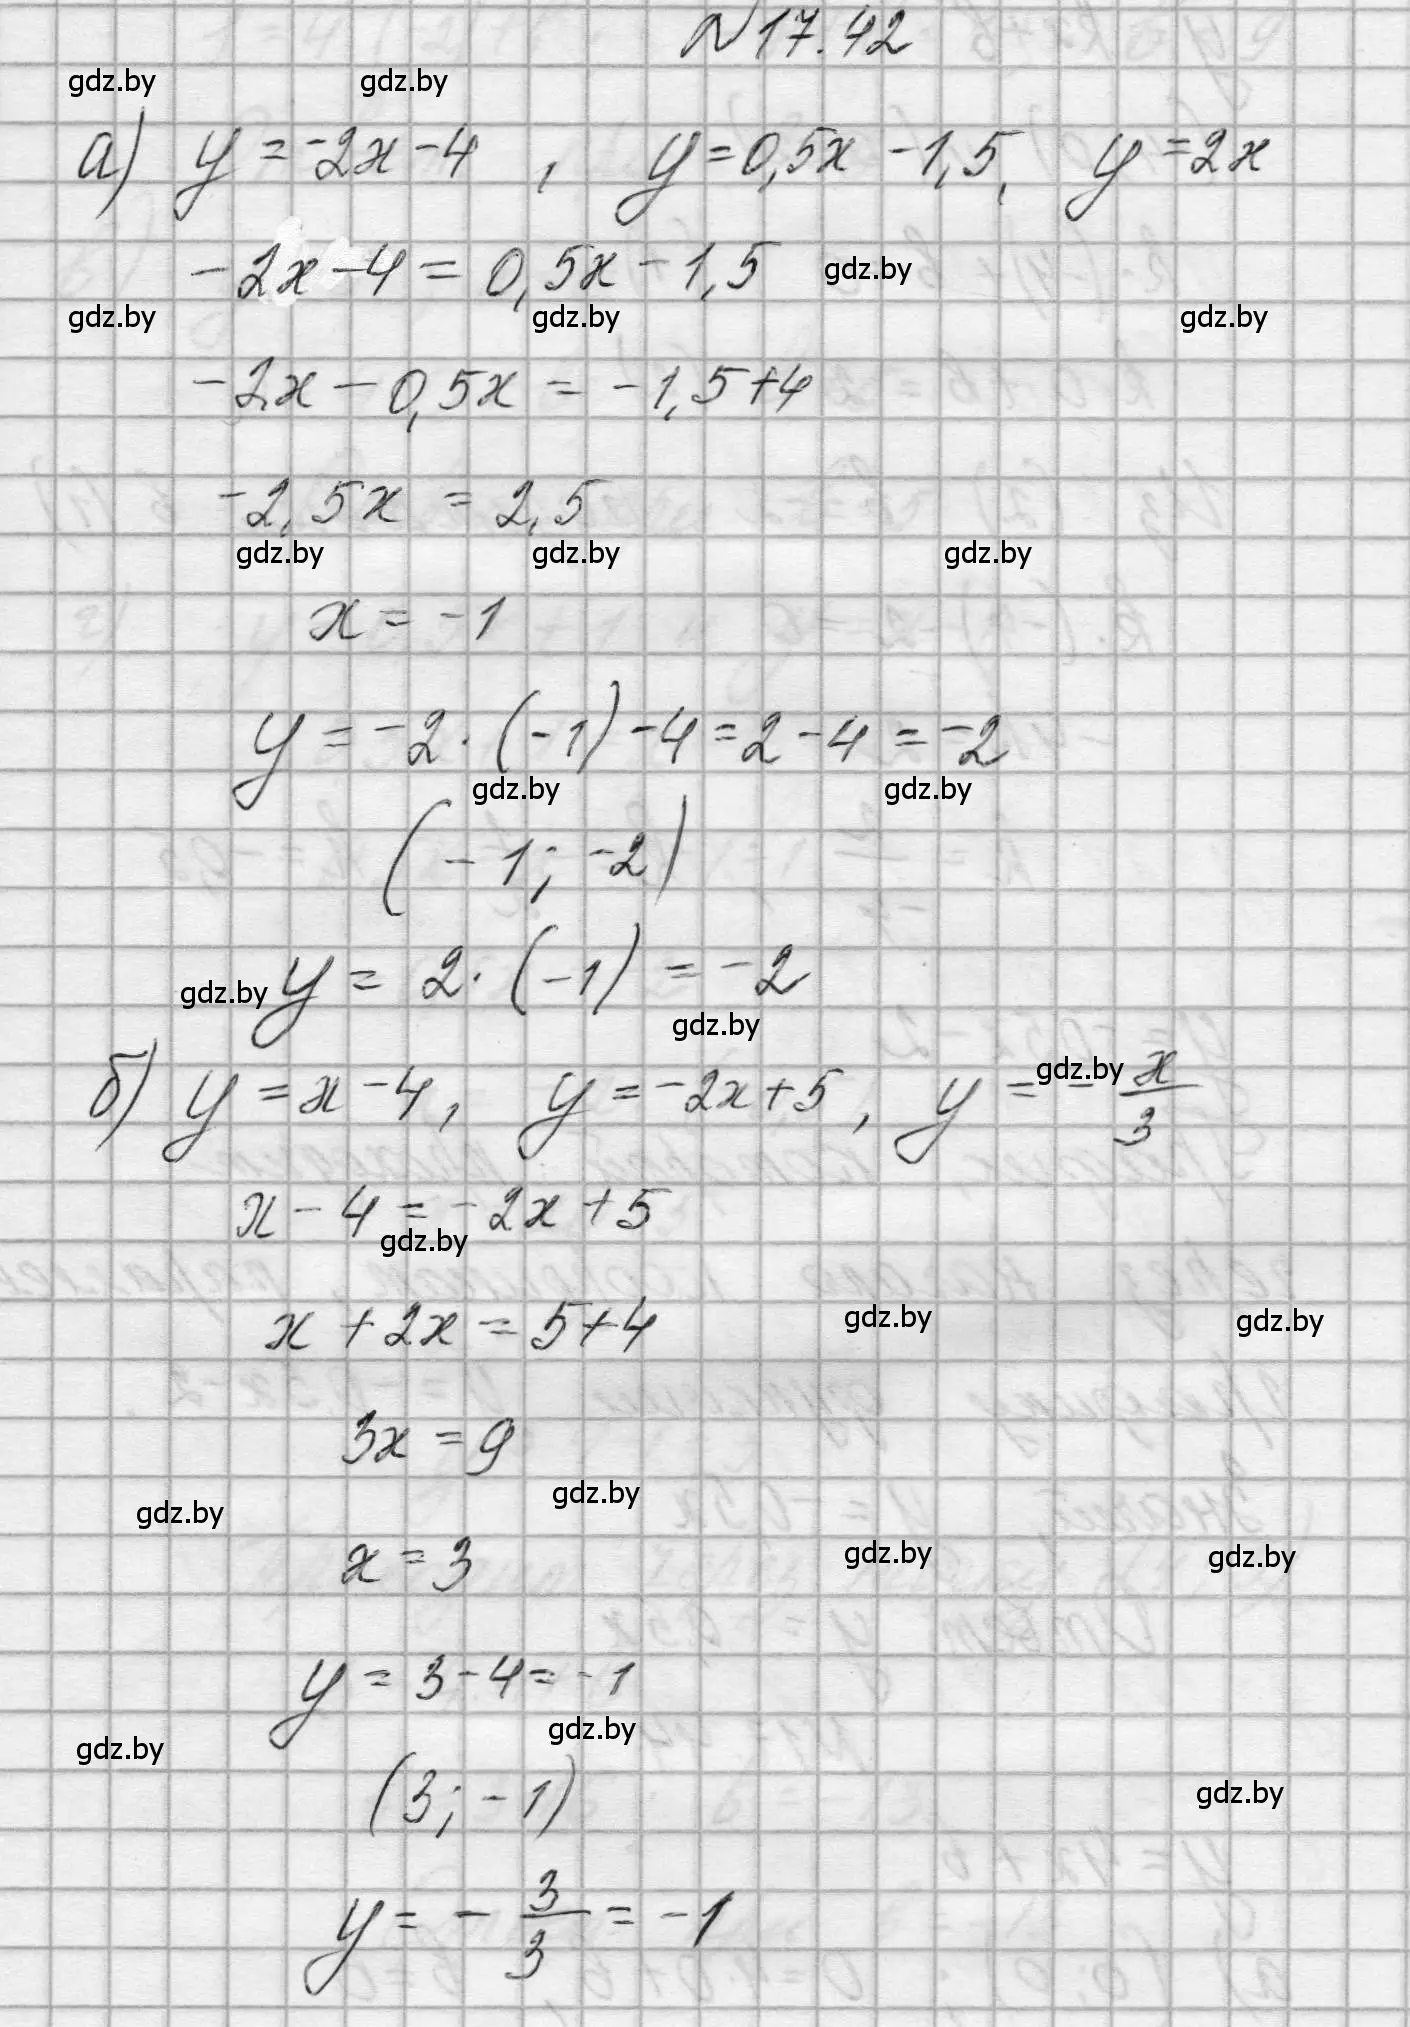 №17.42
gdz.by gdz.by
а) y = -2x - 4 , y = 0,5x - 1,5, y = 2x
-2x - 4 = 0,5x - 1,5 gdz.by
gdz.by gdz.by gdz.by
-2x - 0,5x = -1,5 + 4
-2,5x = 2,5
gdz.by gdz.by gdz.by
x = -1
y = -2 · (-1) - 4 = 2 - 4 = -2
gdz.by gdz.by
(-1; -2)
gdz.by y = 2 · (-1) = -2
gdz.by
б) y = x - 4, y = -2x + 5, y = - x/3 gdz.by
x - 4 = -2x + 5
gdz.by
x + 2x = 5 + 4 gdz.by gdz.by
3x = 9
gdz.by gdz.by
x = 3 gdz.by gdz.by
y = 3 - 4 = -1
gdz.by gdz.by
(3; -1) gdz.by
y = - 3/3 = -1